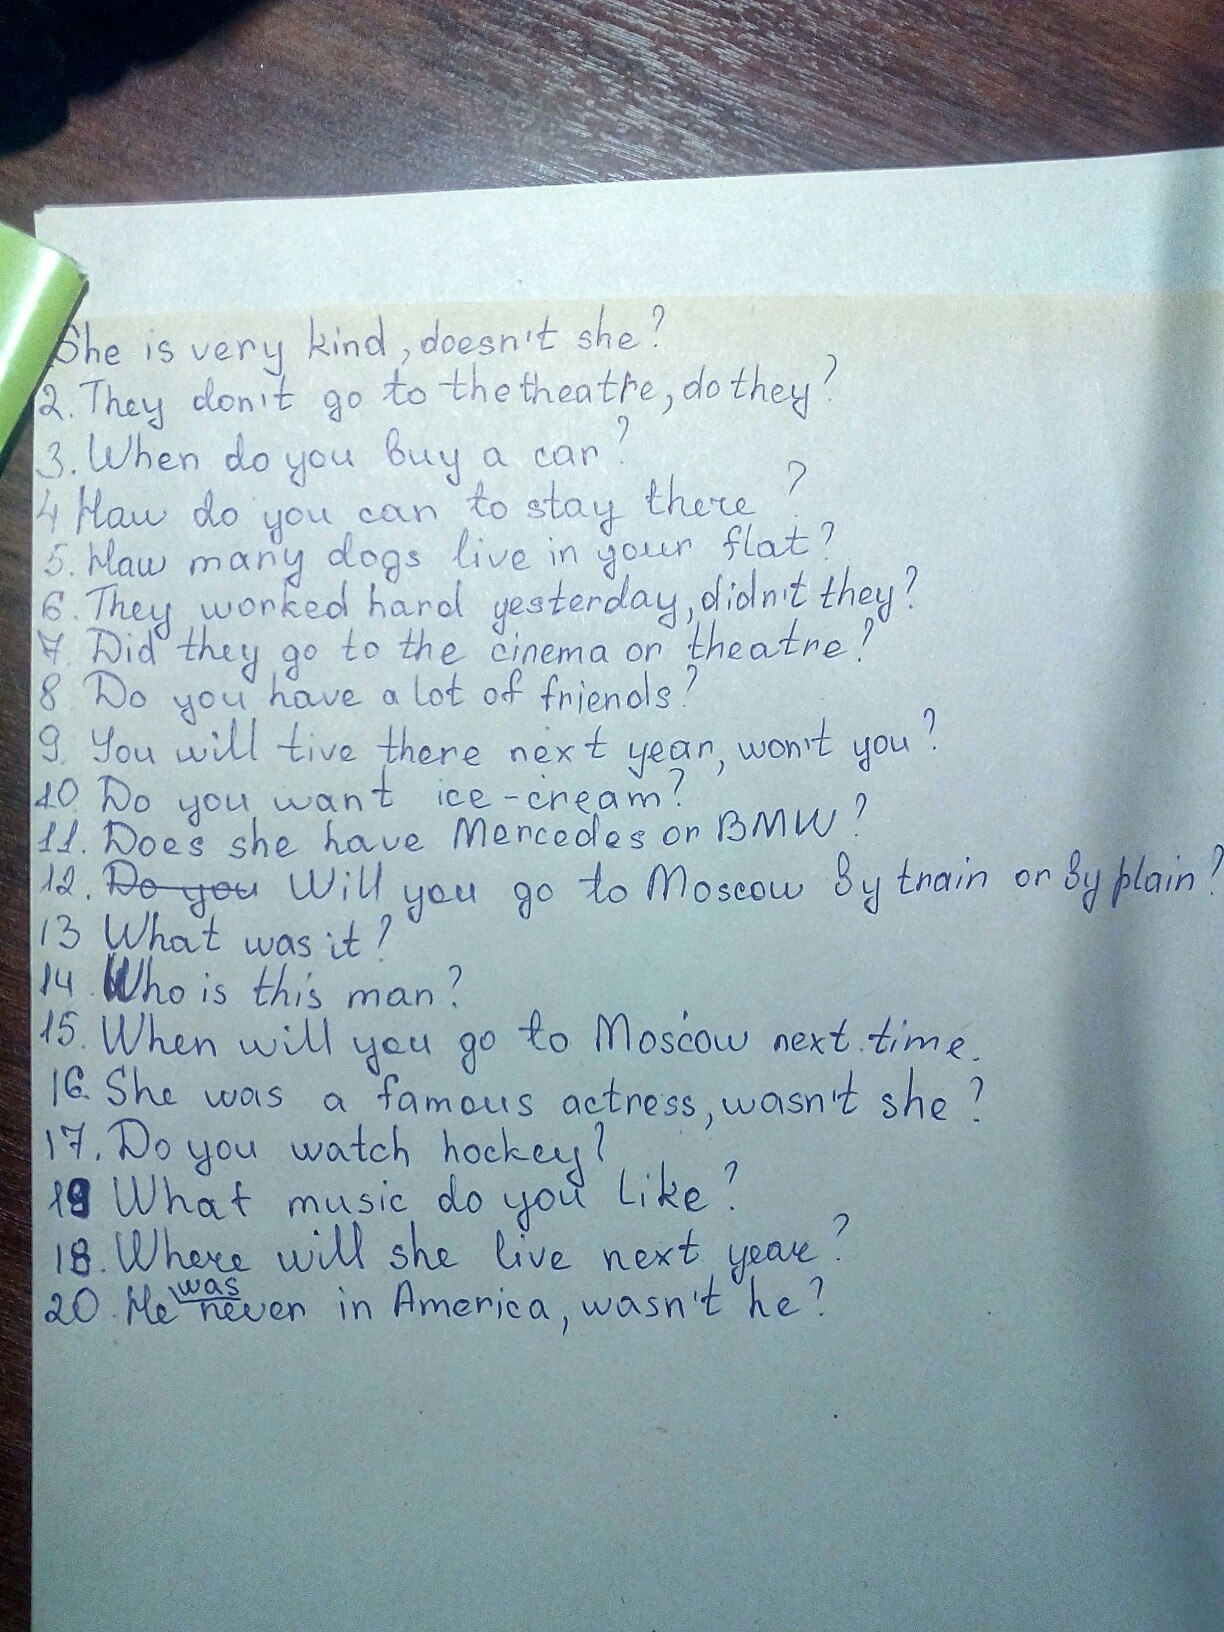 She is very kind, doesn't she?
2. They don't go to the theatre, do they?
3. When do you buy a car?
4 Haw do you can to stay there?
5. Haw many dogs live in your flat?
6. They worked hard yesterday, didn't they?
7. Did they go to the cinema or theatre?
8 Do you have a lot of friends?
9. You will tive there next year, won't you?
10. Do you want ice-cream?
11. Does she have Mercedes or BMW?
12. Do you Will you go to Moscow by train or by plain?
13 What was it?
14. Who is this man?
15. When will you go to Moscow next time.
16. She was a famous actress, wasn't she?
17. Do you watch hockey?
19 What music do you like?
18. Where will she live next year?
20. He was never in America, wasn't he?